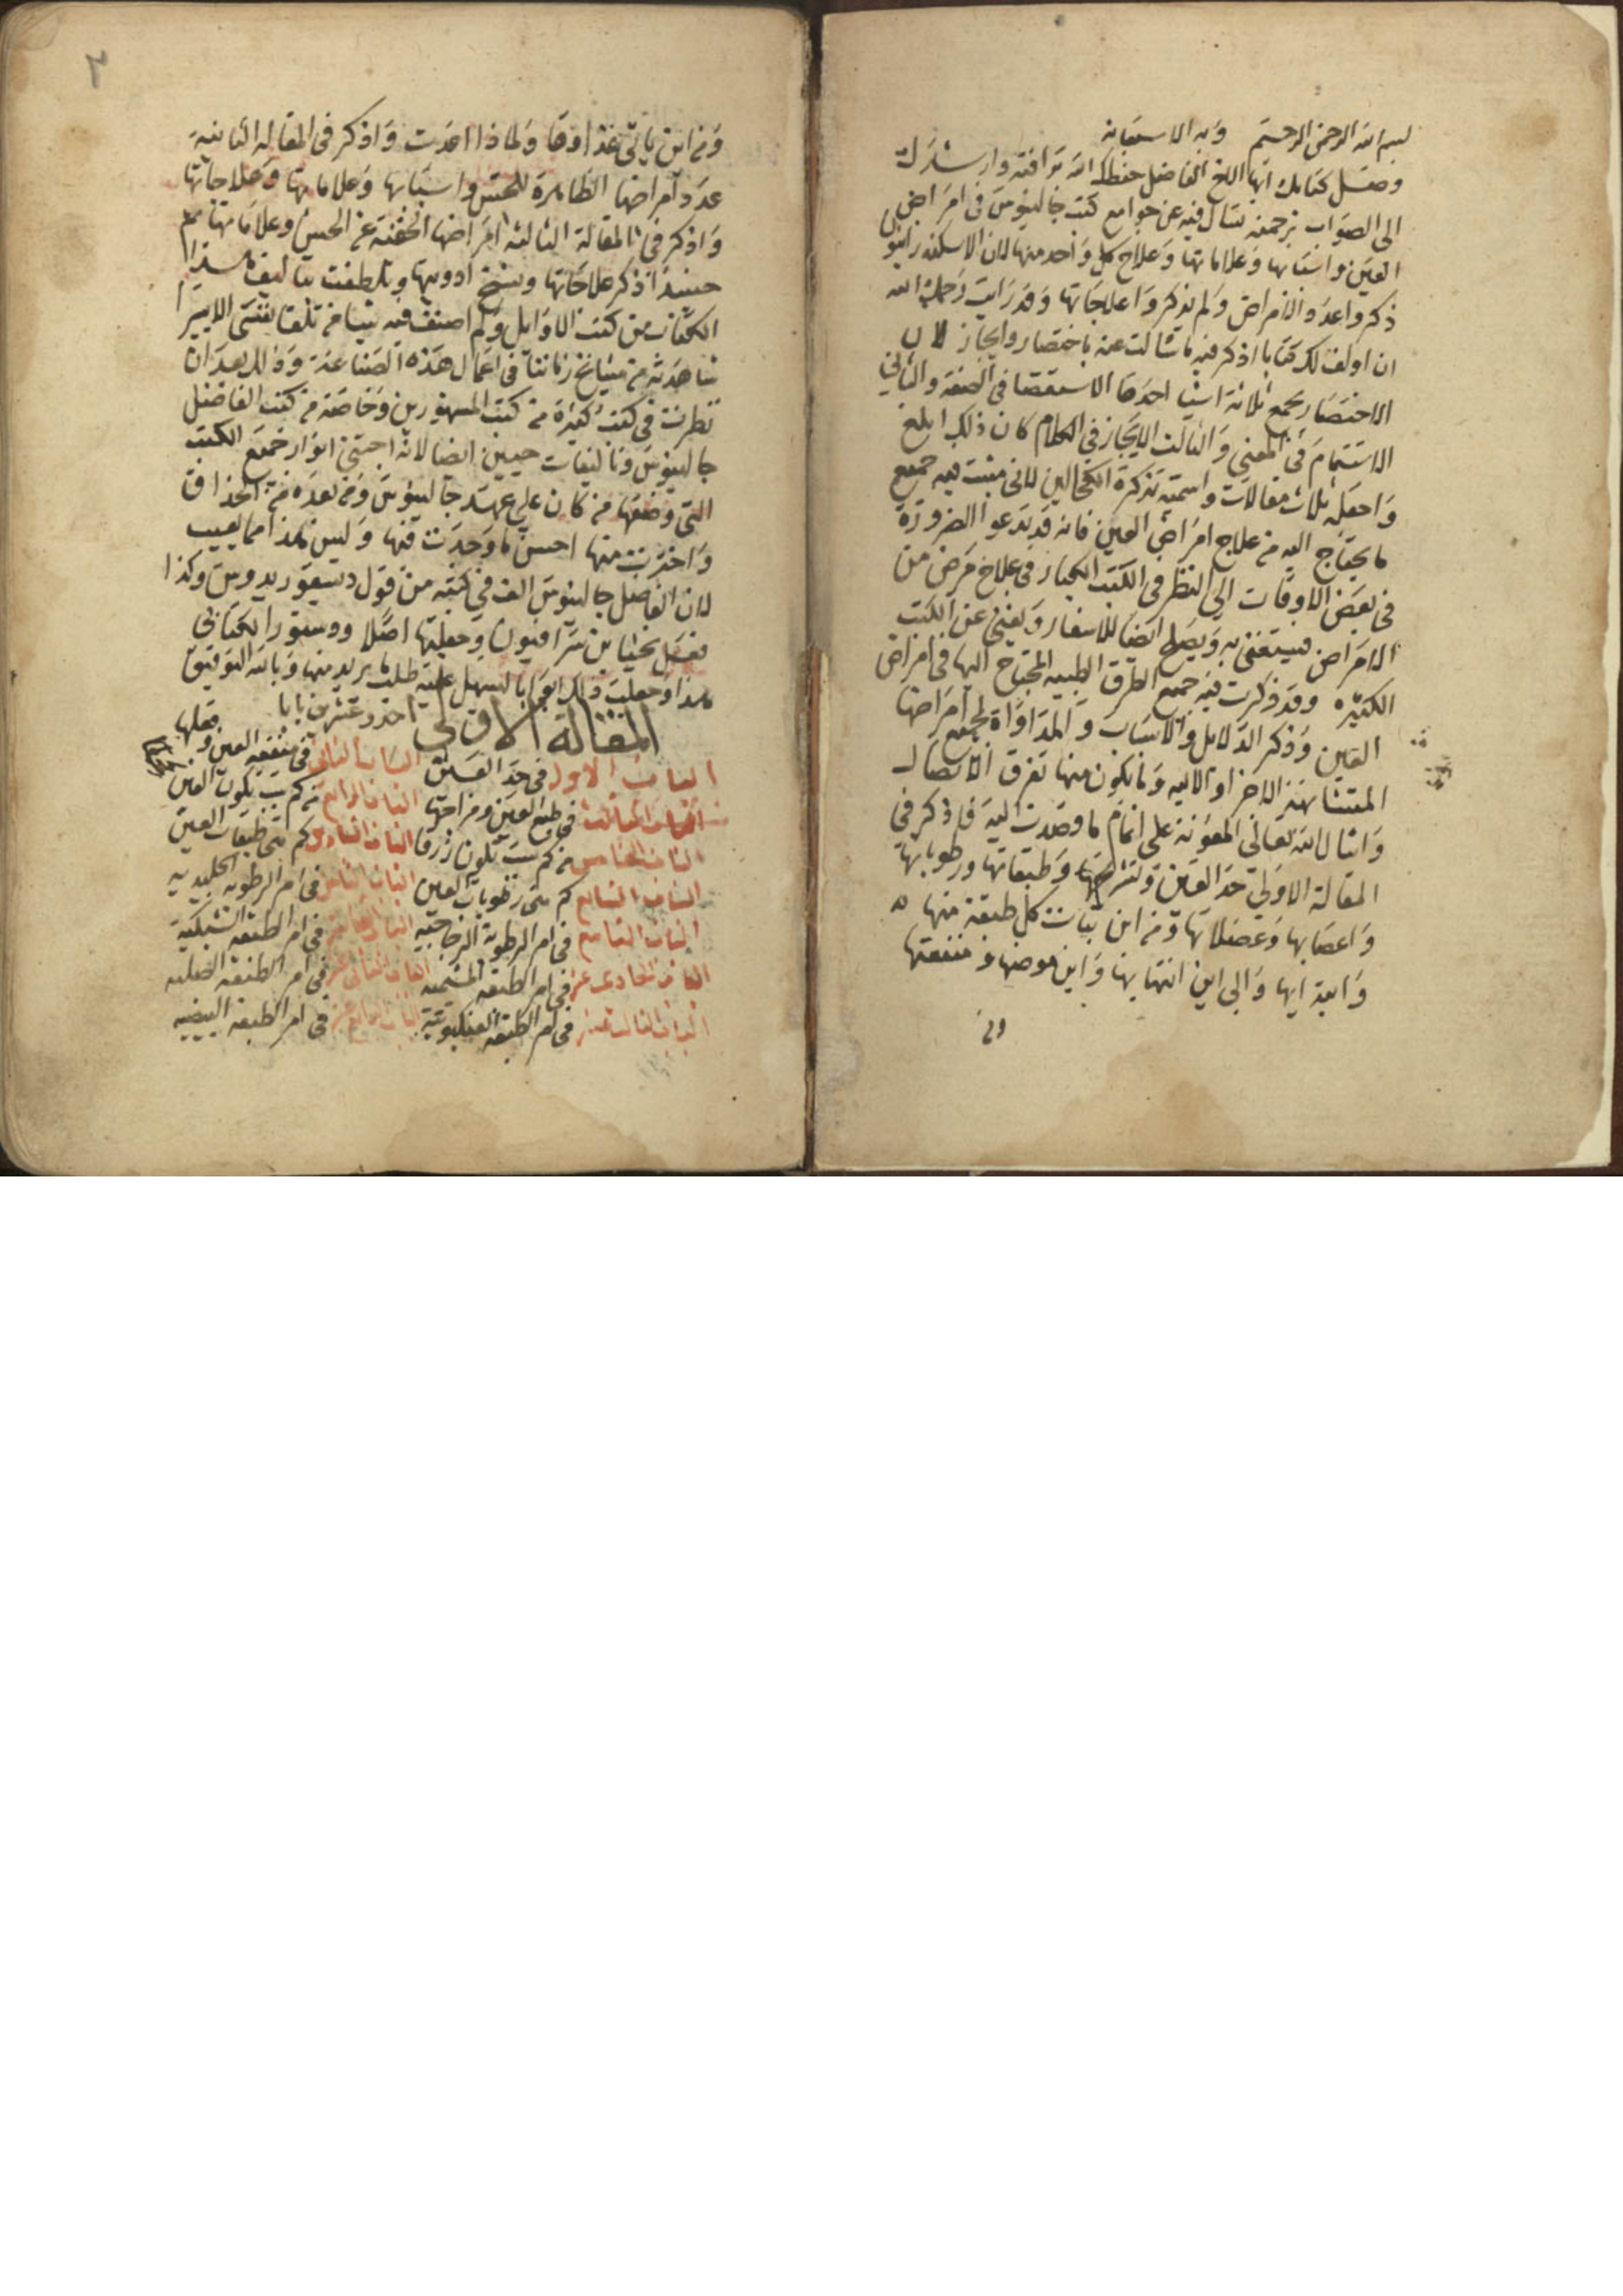 بسم الله الرحمن الرحيم وبه الاستعانه
وصل كتابك ايها الاخ الفاضل حفظك الله توافقه وارشدك
الى الصواب برحمته تسال فيه عن جوامع كتب جالينوس في امراض
العين واسبابها وعلاماتها وعلاج كل واحد منها لان الاسكندرانيو
ذكروا عدد الامراض ولم يذكروا علاجاتها وقد رايت رحمك الله
ان اولف لك كتابا اذكر فيه ما سالت عنه باختصار وايجاز لان
الاختصار يجمع ثلاثة اشيا احدها الاستقصا في الصفة والثاني
الاستتمام في المعني والثالث الايجاز في الكلام كان ذلك ابلغ
واجعله ثلاث مقالات واسمته تذكرة الكحالين لاني بينت فيه جميع
ما يحتاج اليه من علاج امراض العين فانه قد يدعوا الضرورة
في بعض الاوقات الي النظر في الكتب الكبار في علاج مرض من
الامراض فيستغني به ويصلح ايضا للاسفار ويغني عن الكتب
الكثيره وقد ذكرت فيه جميع الطرق الطبيه المحتاج اليها في امراض
العين وذكر الدلايل والاسباب والمداواة لجميع امراضها
المتشابهة الاجزا والاليه وما يكون منها تفرق الاتصال
واسال الله تعالى المعونة على اتمام ما وصدت اليه فاذكر في
المقالة الاولي حد العين وتشريحها وطبقاتها ورطوباتها
واعصابها وعضلاتها ومن اين نبات كل طبقة منها
وابتدايها والي اين انتهايها واين موضعها ومنفعتها
ومن
ومن اين ياتي غذاوها ولماذا اعدت واذكر في المقاله الثانية
عدد امراضها الظاهرة للحس واسبابها وعلاماتها وعلاجاتها
واذكر في المقالة الثالثه امراضها الخفية عن الحس وعلاماتها ثم
حينيذ اذكر علاجاتها ونسخ ادويتها وتلطفت بتاليف هذا
الكتاب من كتب الاوايل ولم اصنف فيه شيا من تلقا نفسي الا يسيرا
شاهدته من مشايخ زماننا في اعمال هذه الصناعة وذلك بعد ان
نظرت في كتب كثيرة من كتب المشهورين وخاصة من كتب الفاضل
جالينوس وتاليفات حنين ايضا لانه اجتني انوار جميع الكتب
التي وضعها من كان علي عهد جالينوس ومن بعده من الحذاق
واخترت منها احسن ما وجدت فيها وليس هذا مما يعيب
لان الفاضل جالينوس الف في كتبه من قول ديسقوريدوس وكذا
فعل يحيا بن سرافيون وجعلتها اصلا ودستورا لكتابي
هذا وجعلت ذلك ابوابا ليسهل عليه طلب ما يريد منها وبالله التوفيق
المقالة الاولى احد وعشرين بابا
الباب الاول في حد العين الباب الثاني في منفعه العين وفعلها
الباب الثالث في طبع العين ومزاجها الباب الرابع من كم سبب يكون العين
الباب الخامس من كم سبب تكون زرقا الباب السادس كم هي طبقات العين
الباب السابع كم هي رطوبات العين الباب الثامن في امر الرطوبة الجليديه
الباب التاسع في امر الرطوبة الزجاجيه الباب العاشر في امر الطبقه الشبكية
الباب الحادي عشر في امر الطبقه المشيميه الباب الثاني عشر في امر الطبقه الصلبه
الباب الثالث عشر في امر الطبقه العنكبوتية الباب الرابع عشر في امر الطبقه البيضيه